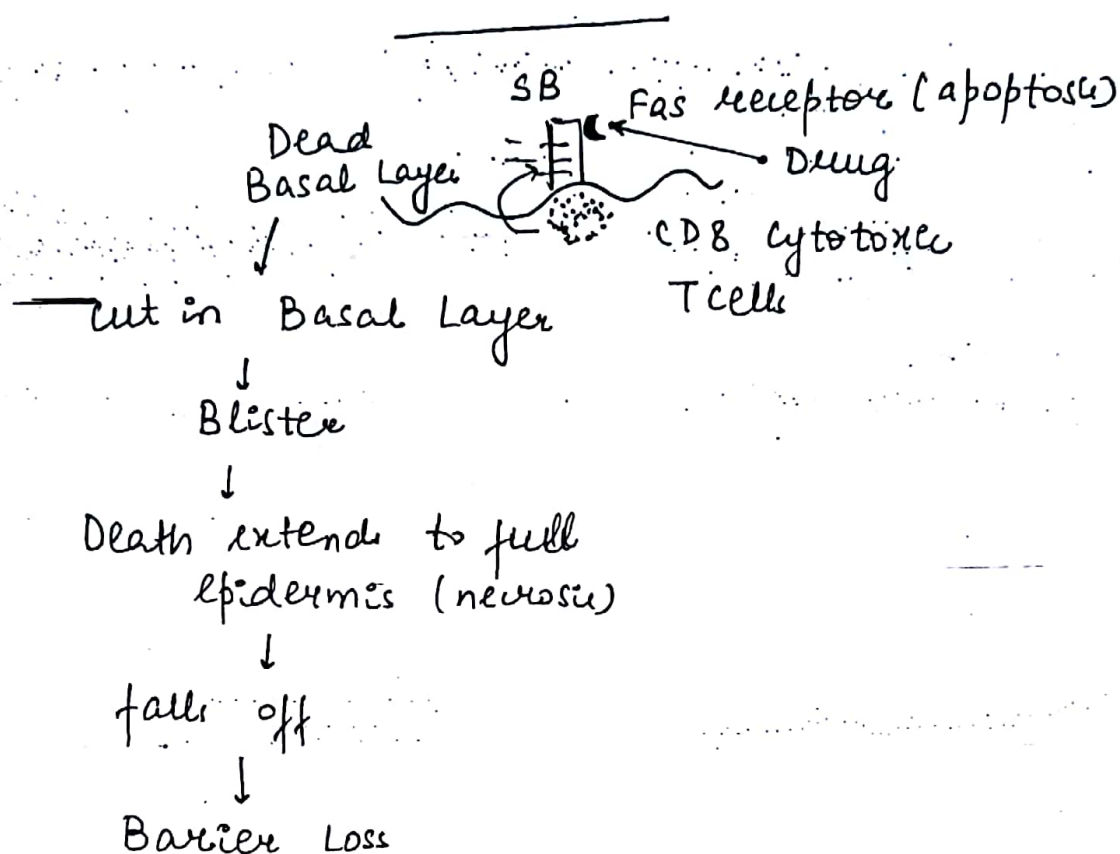 SB
Fas receptor (apoptosis)
Dead
Basal Layer
Drug
CD8 cytotoxic
T cells
cut in Basal Layer
↓
Blister
↓
Death extends to full
epidermis (necrosis)
↓
falls off
↓
Barier Loss